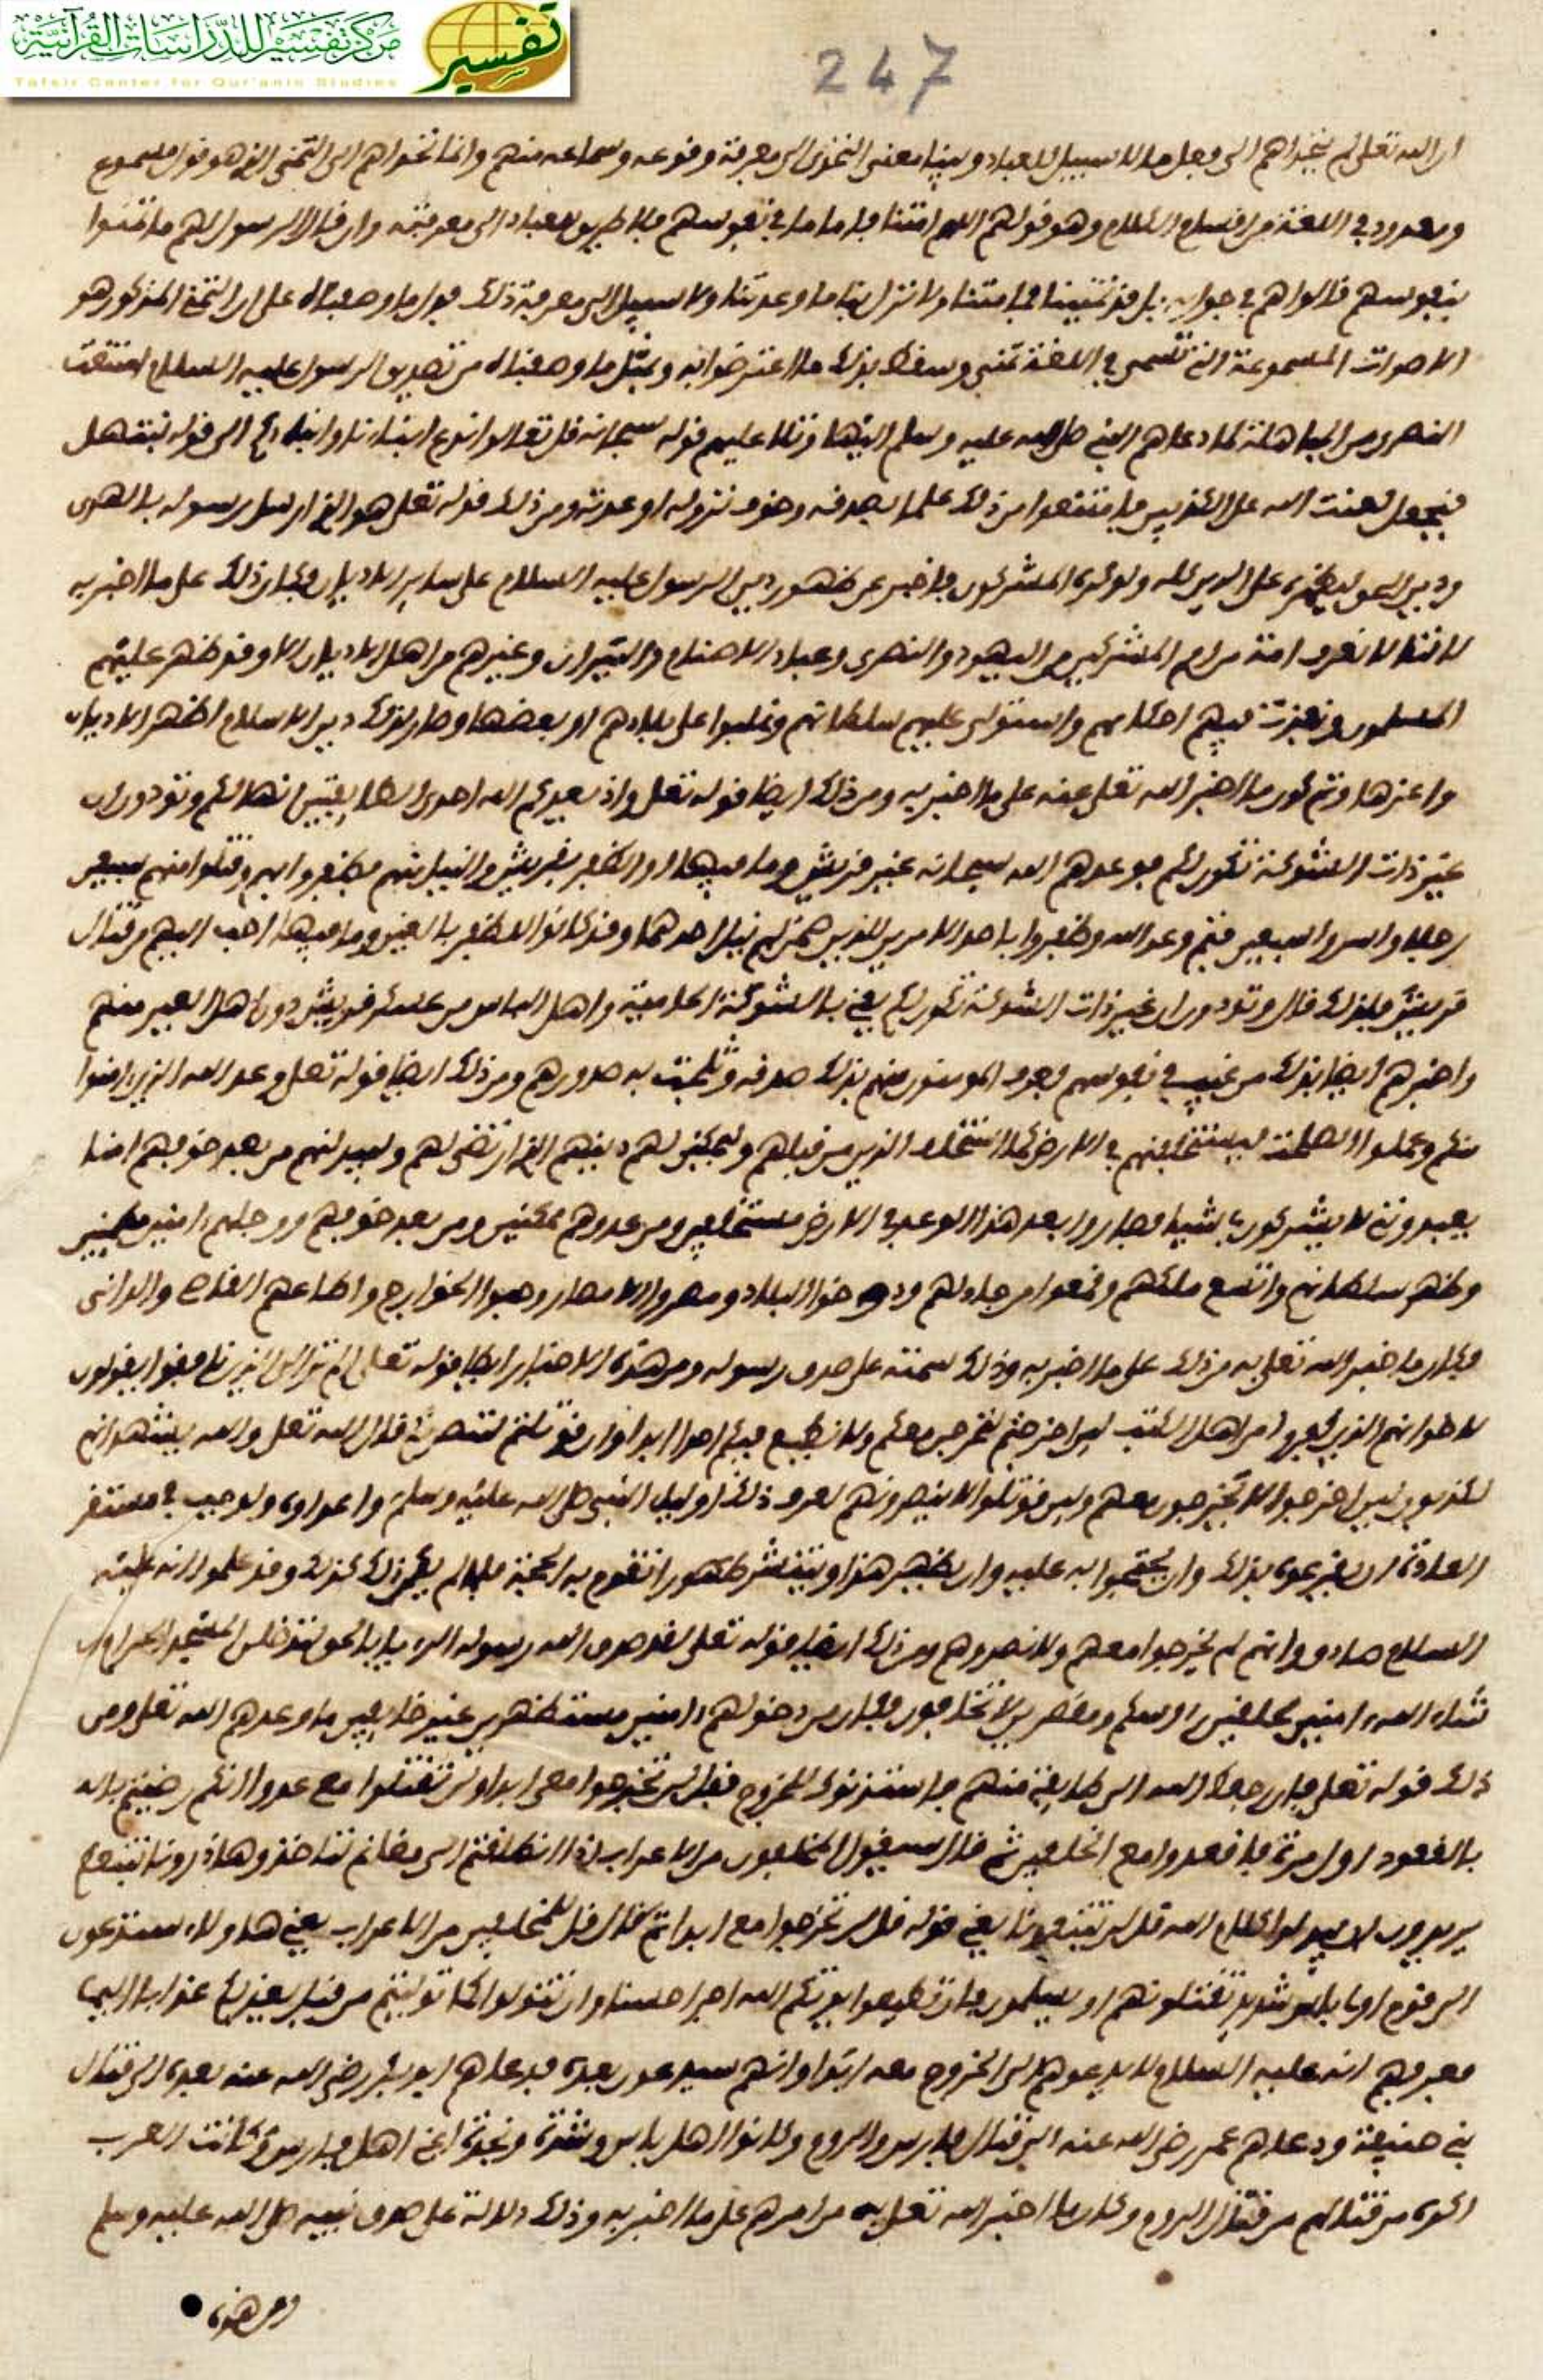 مركز تفسير للدراسات القرآنية
Tafsir Center for Qur'anic Studies
تفسير
247
ان الله تعلى لم يتحداهم الى فعل ما لا سبيل للعباد وبينا معنى التحدى الى معرفة وقوعه وسماعه منهم وانما تحداهم الى التمنى الذى هو قول مسموع
ومعدود في اللغة من اقسام الكلام وهو قولهم اللهم امتنا فاما ما في نفوسهم فلا طريق للعباد الى معرفته وان قال الرسول لهم ما تمنوا
بنفوسهم قالوا هم في جوابه بل قد تمنينا فما متنا ولا نزل بنا ما وعدتنا ولا سبيل الى معرفة ذلك فدل ما وصفناه على ان التمنى المذكور هو
الاصوات المسموعة التى تسمى في اللغة تمنى وسقط بذلك ما اعترضوا به وبمثل ما وصفناه من تصديق الرسول عليه السلام امتنعت
النصرى من المباهلة لما دعاهم النبي صلى الله عليه وسلم اليها وتلا عليهم قوله سبحانه قل تعالوا ندع ابناءنا وابناءكم الى قوله نبتهل
فنجعل لعنت الله على الكذبين فامتنعوا من ذلك علما بصدقه وخوف نزول ما وعدته ومن ذلك قوله تعلى هو الذى ارسل رسوله بالهدى
ودين الحق ليظهره على الدين كله ولو كره المشركون فاخبر عن ظهور دين الرسول عليه السلام على سائر الاديان فكان ذلك على ما اخبر به
لاننا لا نعرف امة من امم المشركين من اليهود والنصرى وعباد الاصنام والنيران وغيرهم من اهل الاديان الا وقد ظهر عليهم
المسلمون ونفذت فيهم احكامهم واستولى عليهم سلطانهم وغلبوا على بلادهم او بعضها وصار بذلك دين الاسلام اظهر الاديان
واعزها وتم كون ما اخبر الله تعلى عنه على ما اخبر به ومن ذلك ايضا قوله تعلى واذ يعدكم الله احدى الطايفتين انها لكم وتودون ان
غير ذات الشوكة تكون لكم فوعدهم الله سبحانه عير قريش وما فيها او الظفر بقريش والنيل منهم فظفروا بهم وقتلوا منهم سبعين
رجلا واسروا سبعين فتم وعد الله وظفروا باحد الامرين الذين ضمن لهم نيل احدهما وقد كانوا الظفر بالعير وما فيها احب اليهم من قتال
قريش فلذلك قال وتودون ان غير ذات الشوكة تكون لكم يعنى بالشوكة الحامية واهل الباس من عسكر قريش دون اهل العير منهم
واخبرهم ايضا بذلك من غيب في نفوسهم فعرف المومنون منهم بذلك صدقه وثلجت به صدورهم ومن ذلك ايضا قوله تعلى وعد الله الذين امنوا
منكم وعملوا الصلحت ليستخلفنهم في الارض كما استخلف الذين من قبلهم وليمكنن لهم دينهم الذى ارتضى لهم وليبدلنهم من بعد خوفهم امنا
يعبدونني لا يشركون بي شيئا فصاروا بعد هذا الوعد في الارض مستخلفين ومن عدوهم ممكنين ومن بعد خوفهم ووجلهم امنين مطمنين
وظهر سلطانهم واتسع ملكهم وقمعوا من جاولهم ودوخوا البلاد ومصروا الامصار وجبوا الخوارج واطاعهم القاصى والدانى
فكان ما خبر الله تعلى به من ذلك على ما اخبر به وذلك سمته على صدق رسوله ومن هذه الاخبار ايضا قوله تعلى الم تر الى الذين نافقوا يقولون
لاخوانهم الذين كفروا من اهل الكتب لين اخرجتم لنخرجن معكم ولا نطيع فيكم احدا ابدا وان قوتلتم لننصرنكم قال الله تعلى والله يشهد انهم
لكذبون لين اخرجوا لا يخرجون معهم ولين قوتلوا لا ينصرونهم لعرف ذلك اوليل النبي صلى الله عليه وسلم واعداوه ولوجب في مستقر
العادة ان يقرعوه بذلك وان يحتجوا به عليه وان يظهر هذا وينتشر ظهورا تقوم به الحجة فلما لم يكن ذلك كذلك وقد علموا انه عليه
السلام صادق وانهم لم يخرجوا معهم ولا نصروهم ومن ذلك ايضا قوله تعلى لقد صدق الله رسوله الرءيا بالحق لتدخلن المسجد الحرام ان
شاء الله امنين محلقين روسكم ومقصرين لا تخافون فكان من دخولهم امنين مستظهرين غير خايفين ما وعدهم الله تعلى ومن
ذلك قوله تعلى فان رجعك الله الى طايفة منهم فاستذنوك للخروج فقل لن تخرجوا معى ابدا ولن تقتلوا معى عدوا انكم رضيتم
بالقعود اول مرة فاقعدوا مع الخلفين ثم قال سيقول المخلفون من الاعراب اذا انطلقتم الى مغانم لتاخذوها ذرونا نتبعكم
يريدون ان يبدلوا كلام الله قل لن تتبعونا يعنى قوله قل لن تخرجوا معى ابدا ثم قال قل للمخلفين من الاعراب يعنى هاولاء ستدعون
الى قوم اولى باس شديد تقتلونهم او يسلمون فان تطيعوا يوتكم الله اجرا حسنا وان تتولوا كما توليتم من قبل يعذبكم عذابا اليما
فعرفهم انه عليه السلام لا يدعوهم الى الخروج معه ابدا وانهم سيدعون بعده فدعاهم ابو بكر رضى الله عنه بعده الى قتال
بنى حنيفة ودعاهم عمر رضى الله عنه الى قتال فارس والروم وكانوا اهل باس وشدة ونجدة اعنى اهل فارس وكانت العرب
اكره من قتالهم من قتال الروم وكان ما اخبر الله تعلى به من امرهم على ما اخبر به وذلك دلالة على صدق نبيه صلى الله عليه وسلم
ومن هذه